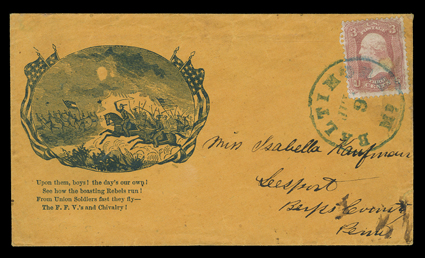 3 3
BALTIM
Upon them, boys! the day's our own!
See how the boasting Rebels run!
From Union Soldiers fast they fly—
The F. F. V.'s and Chivalry!
Miss Isabella Kaufman
Leesport
Berks County
Penna